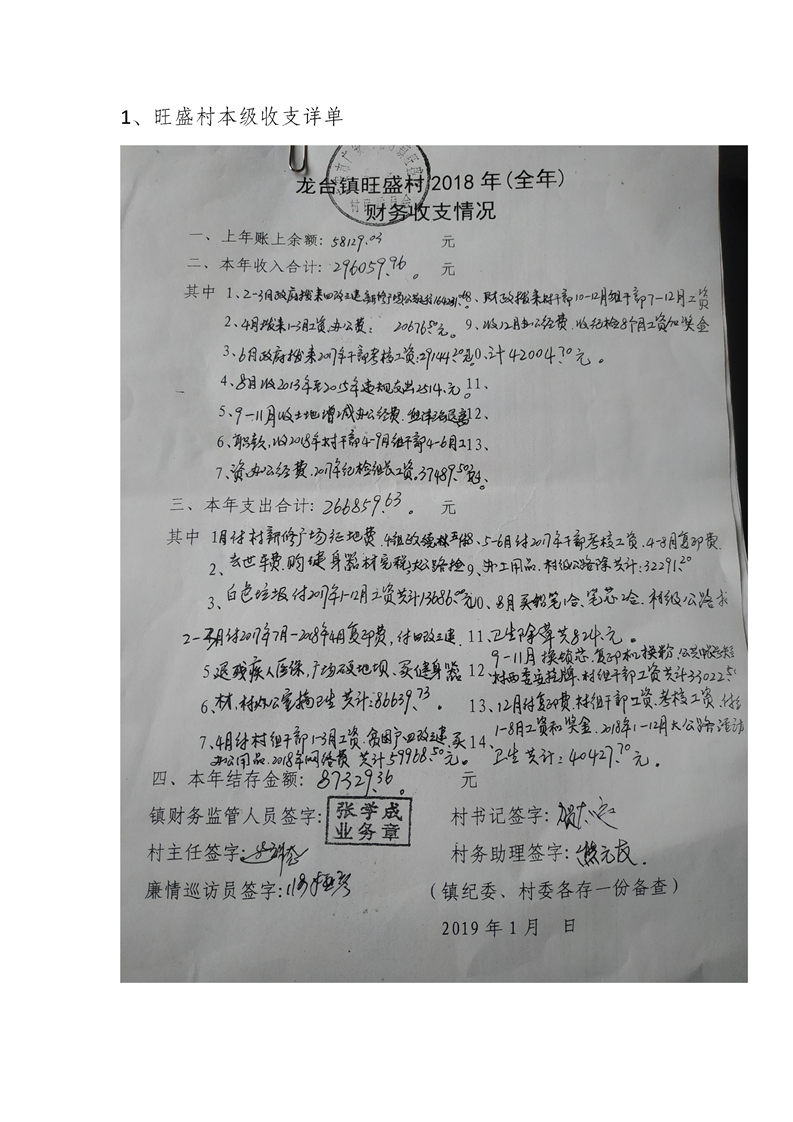 1、旺盛村本级收支详单
龙台镇旺盛村2018年(全年)
财务收支情况
一、上年账上余额: 58129.03 元
二、本年收入合计: 296059.96。 元
其中 1、2-3月政府拨来四改三建、新修广场公路款 8、财政拨来村干部10-12月组干部7-12月工资
2、4月拨来1-3月工资,办公费: 20676.50元。 9、收12月办公经费.收纪检8个月工资加奖金
3、6月政府拨来2017年干部考核工资:29144.20元 10、计42004.70元。
4、8月收2013年至2015年违规支出2514.元。 11、
5、9-11月收土地增减办公经费. 12、
6、职款,收2018年村干部4-9月组干部4-6月工 13、
7、资,办公经费.2017年纪检组长工资.37489.50元
三、本年支出合计: 266859.63。 元
其中 1月付村新修广场征地费. 8、5-6月付2017年干部考核工资.4-8月复印费.
2、去世车费.购健身器材完税,大公路捡 9、办工用品.村级公路除共计:32291.20
3、白色垃圾付2017年1-12月工资共计13686.00元 10、8月买铅笔1合、笔芯2合.村级公路求
2-3月付2017年7月-2018年4月复印费,付四改三建. 11、卫生除草共824.元。
5、退残疾人医保,广场硬地坝.买健身器 12、9-11月换锁芯.复印机换粉,
村两委安挂牌.村组干部工资共计33022.50
6、材,村办公室搞卫生共计:86639.73。 13、12月付复印费.村组干部工资.考核工资.
7、4月付村组干部1-3月工资.贫困户四改三建.买 14、1-8月工资和奖金.2018年1-12月大公路清洁
办公用品.2018年网络费 共计59968.50元。 卫生共计:40427.70元。
四、本年结存金额: 87329.36。 元
镇财务监管人员签字: 张学成 业务章 村书记签字:
村主任签字: 村务助理签字:
廉情巡访员签字: (镇纪委、村委各存一份备查)
2019年1月 日